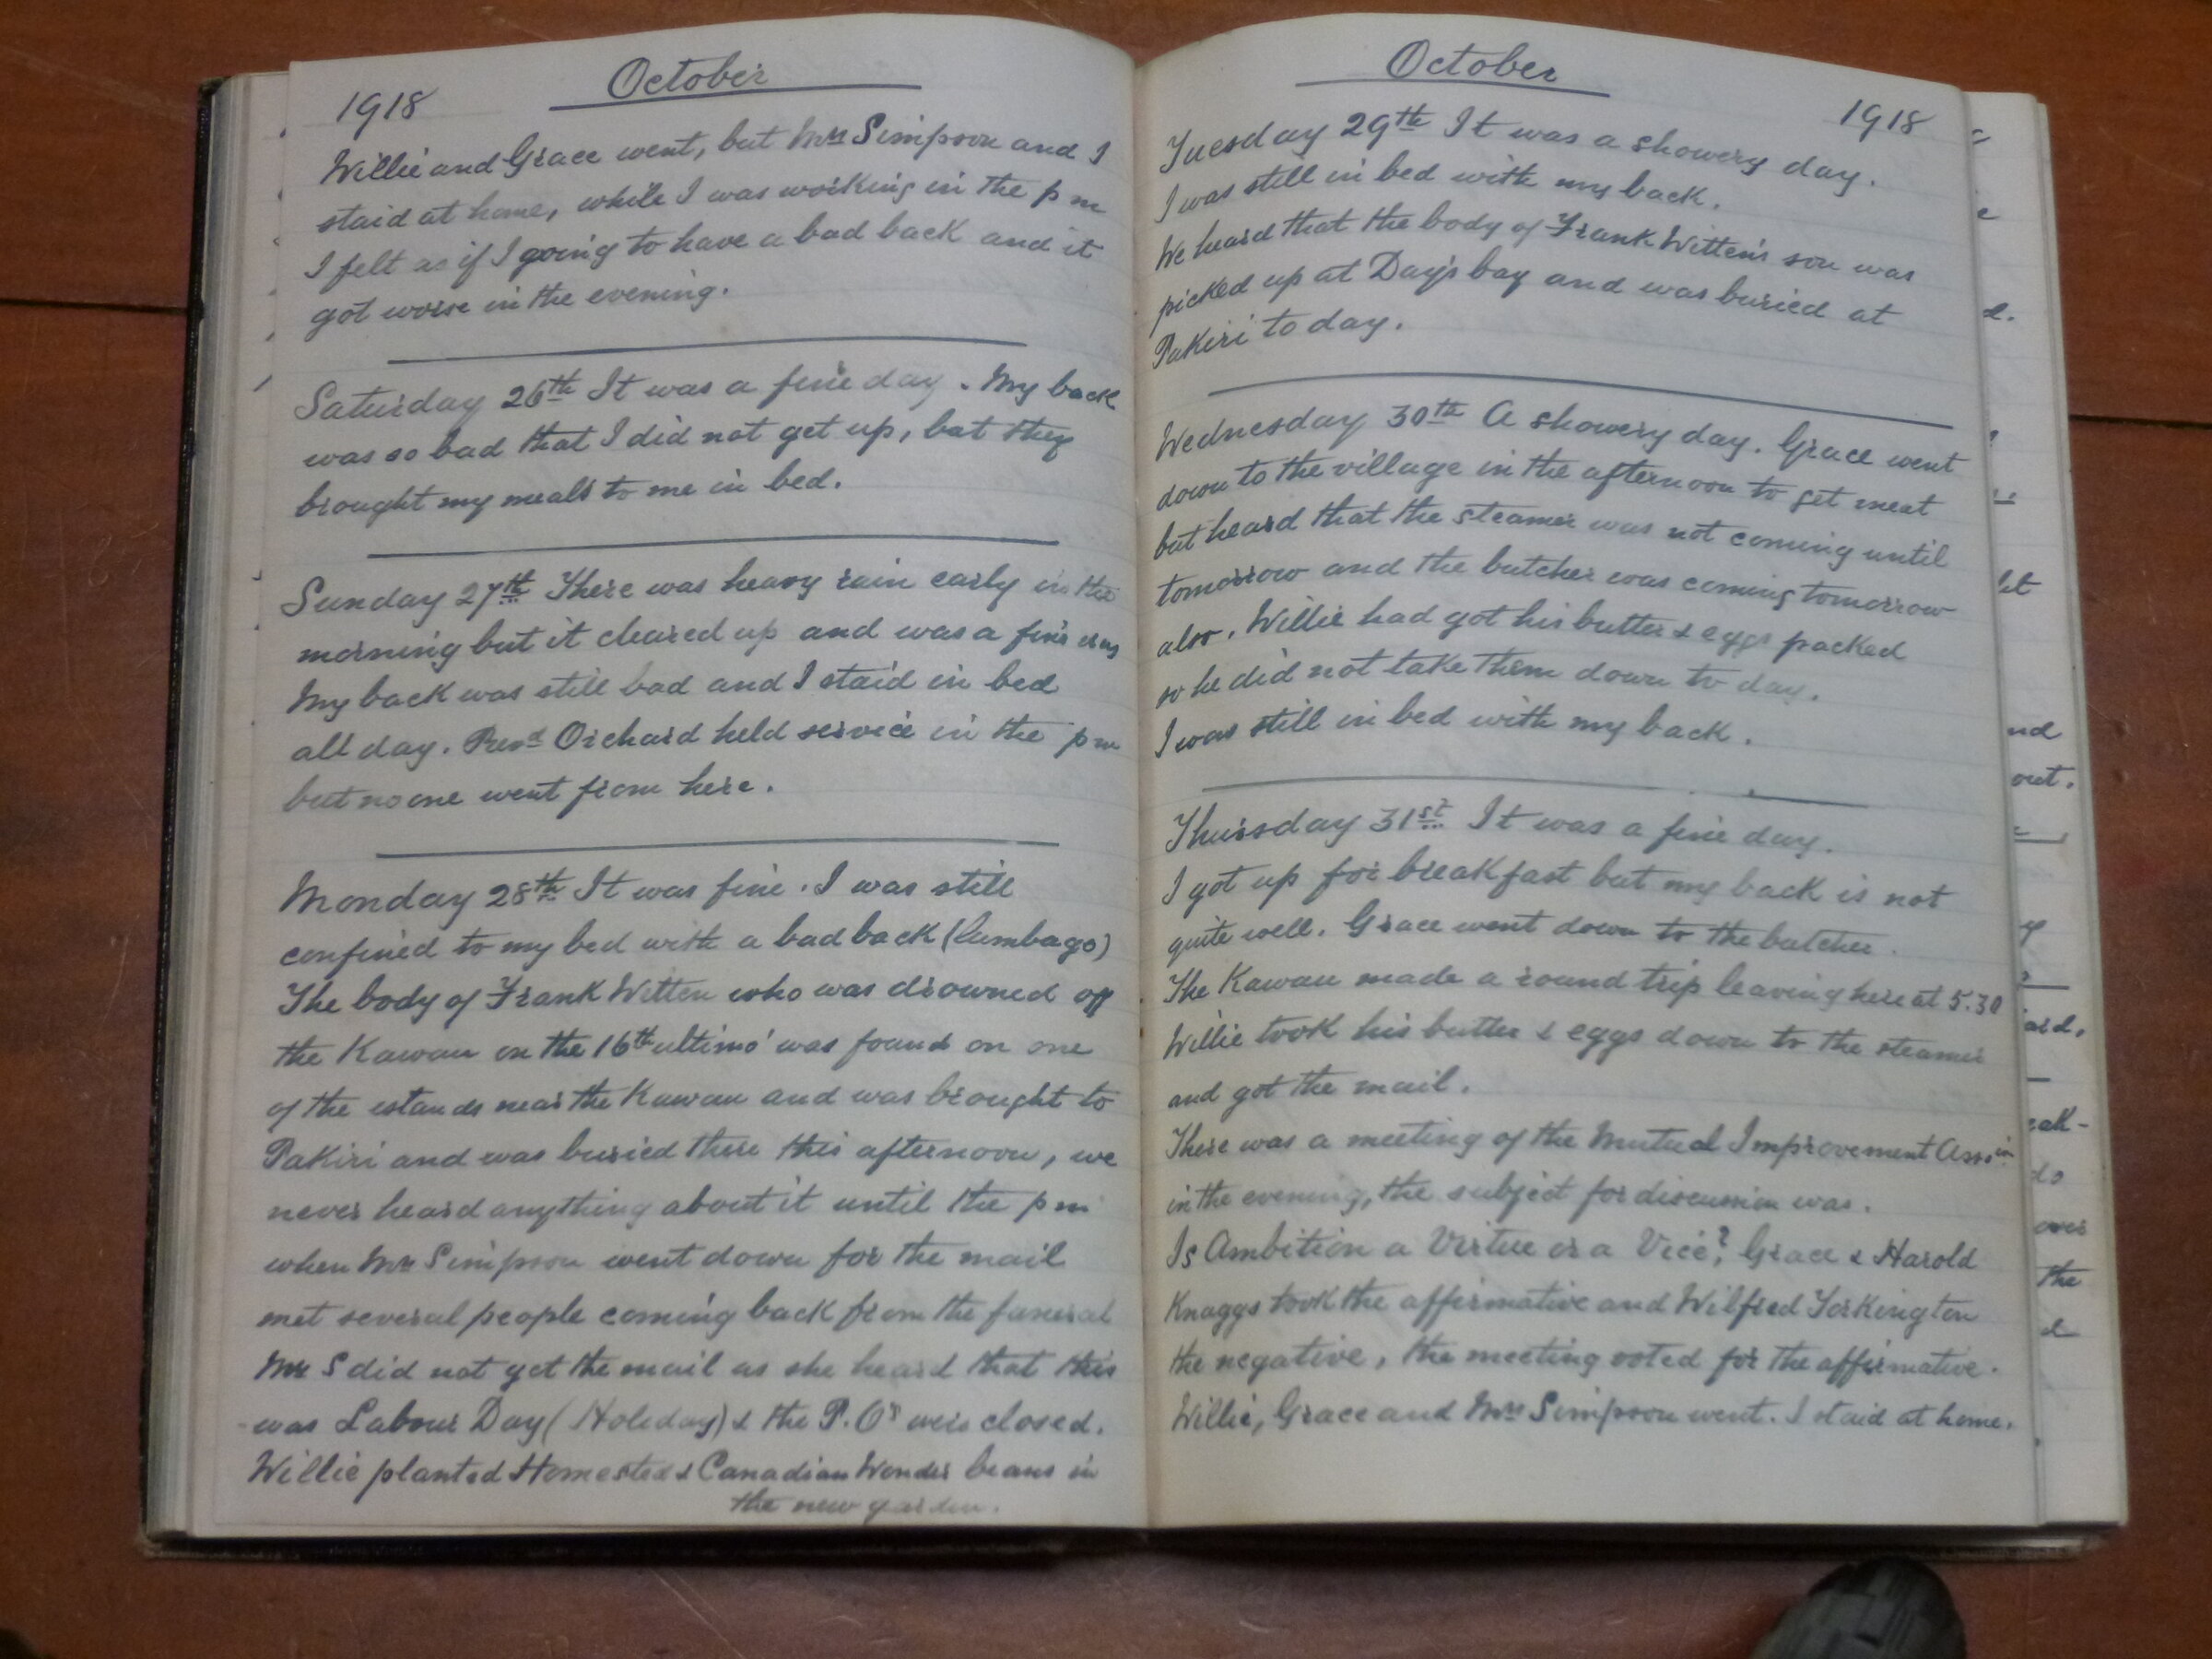 October
1918
Willie and Grace went, but Mrs Simpson and I
staid at home, while I was working in the p m
I felt as if I going to have a bad back and it
got worse in the evening.
Saturday 26th It was a fine day. My back
was so bad that I did not get up, but they
brought my meals to me in bed.
Sunday 27th There was heavy rain early in the
morning but it cleared up and was a fine day
My back was still bad and I staid in bed
all day. Revd Orchard held service in the p m
but no one went from here.
Monday 28th It was fine. I was still
confined to my bed with a bad back (lumbago)
The body of Frank Witten who was drowned off
the Kawau on the 16th ultimo was found on one
of the islands near the Kawau and was brought to
Pakiri and was buried there this afternoon, we
never heard anything about it until the p m
when Mrs Simpson went down for the mail
met several people coming back from the funeral
Mrs S did not get the mail as she heard that this
was Labour Day (Holiday) & the P. Os were closed.
Willie planted Homested & Canadian Wonder beans in
the new garden.
October
1918
Tuesday 29th It was a showery day.
I was still in bed with my back.
We heard that the body of Frank Witten's son was
picked up at Day's bay and was buried at
Pakiri to day.
Wednesday 30th A showery day. Grace went
down to the village in the afternoon to get meat
but heard that the steamer was not coming until
tomorrow and the butcher was coming tomorrow
also. Willie had got his butter & eggs packed
so he did not take them down to day.
I was still in bed with my back.
Thursday 31st It was a fine day.
I got up for breakfast but my back is not
quite well. Grace went down to the butcher.
The Kawau made a round trip leaving here at 5.30
Willie took his butter & eggs down to the steamer
and got the mail.
There was a meeting of the Mutual Improvement Assoin
in the evening, the subject for discussion was.
Is Ambition a Virtue or a Vice? Grace & Harold
Knaggs took the affirmative and Wilfred Torkington
the negative, the meeting voted for the affirmative.
Willie, Grace and Mrs Simpson went. I staid at home.